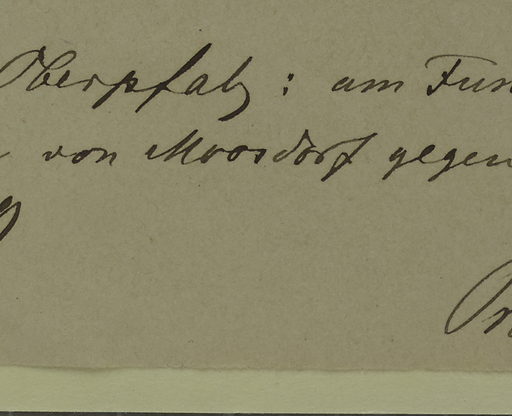 Oberpfalz: am Fun
von Moosdorf gegen
Pr